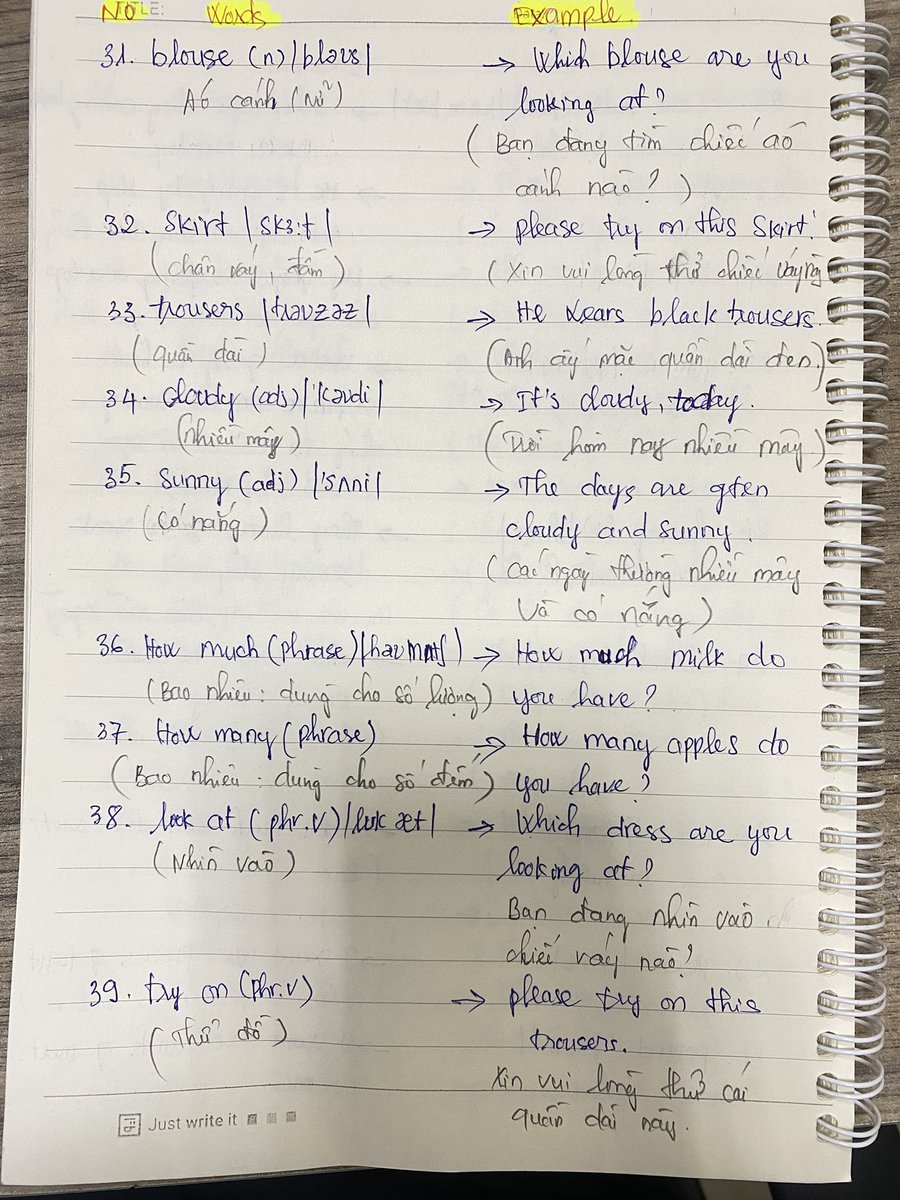 NO TITLE: Words Example.
31. blouse (n)|blaʊs| → Which blouse are you
Aó cánh (nữ) looking at?
(Bạn đang tìm chiếc áo
cánh nào?)
32. Skirt |skɜ:t| → please try on this skirt!
(chân váy, đầm) (Xin vui lòng thử chiếc váy này
33. trousers |traʊzəz| → He wears black trousers.
(quần dài) (Anh ấy mặc quần dài đen.)
34. Cloudy (adj)|'kaʊdi| → It's cloudy, today.
(nhiều mây) (Trời hôm nay nhiều mây)
35. Sunny (adj) |'sʌni| → The days are often
(Có nắng) cloudy and sunny.
(Các ngày thường nhiều mây
và có nắng)
36. How much (phrase)|haʊ mʌtʃ| → How much milk do
(Bao nhiêu: dùng cho số lượng) you have?
37. How many (phrase) → How many apples do
(Bao nhiêu: dùng cho số đếm) you have?
38. look at (phr.v)|lʊk æt| → Which dress are you
(Nhìn vào) looking at?
Bạn đang nhìn vào
chiếc váy nào?
39. try on (phr.v) → please try on this
(Thử đồ) trousers.
Xin vui lòng thử cái
quần dài này.
Just write it